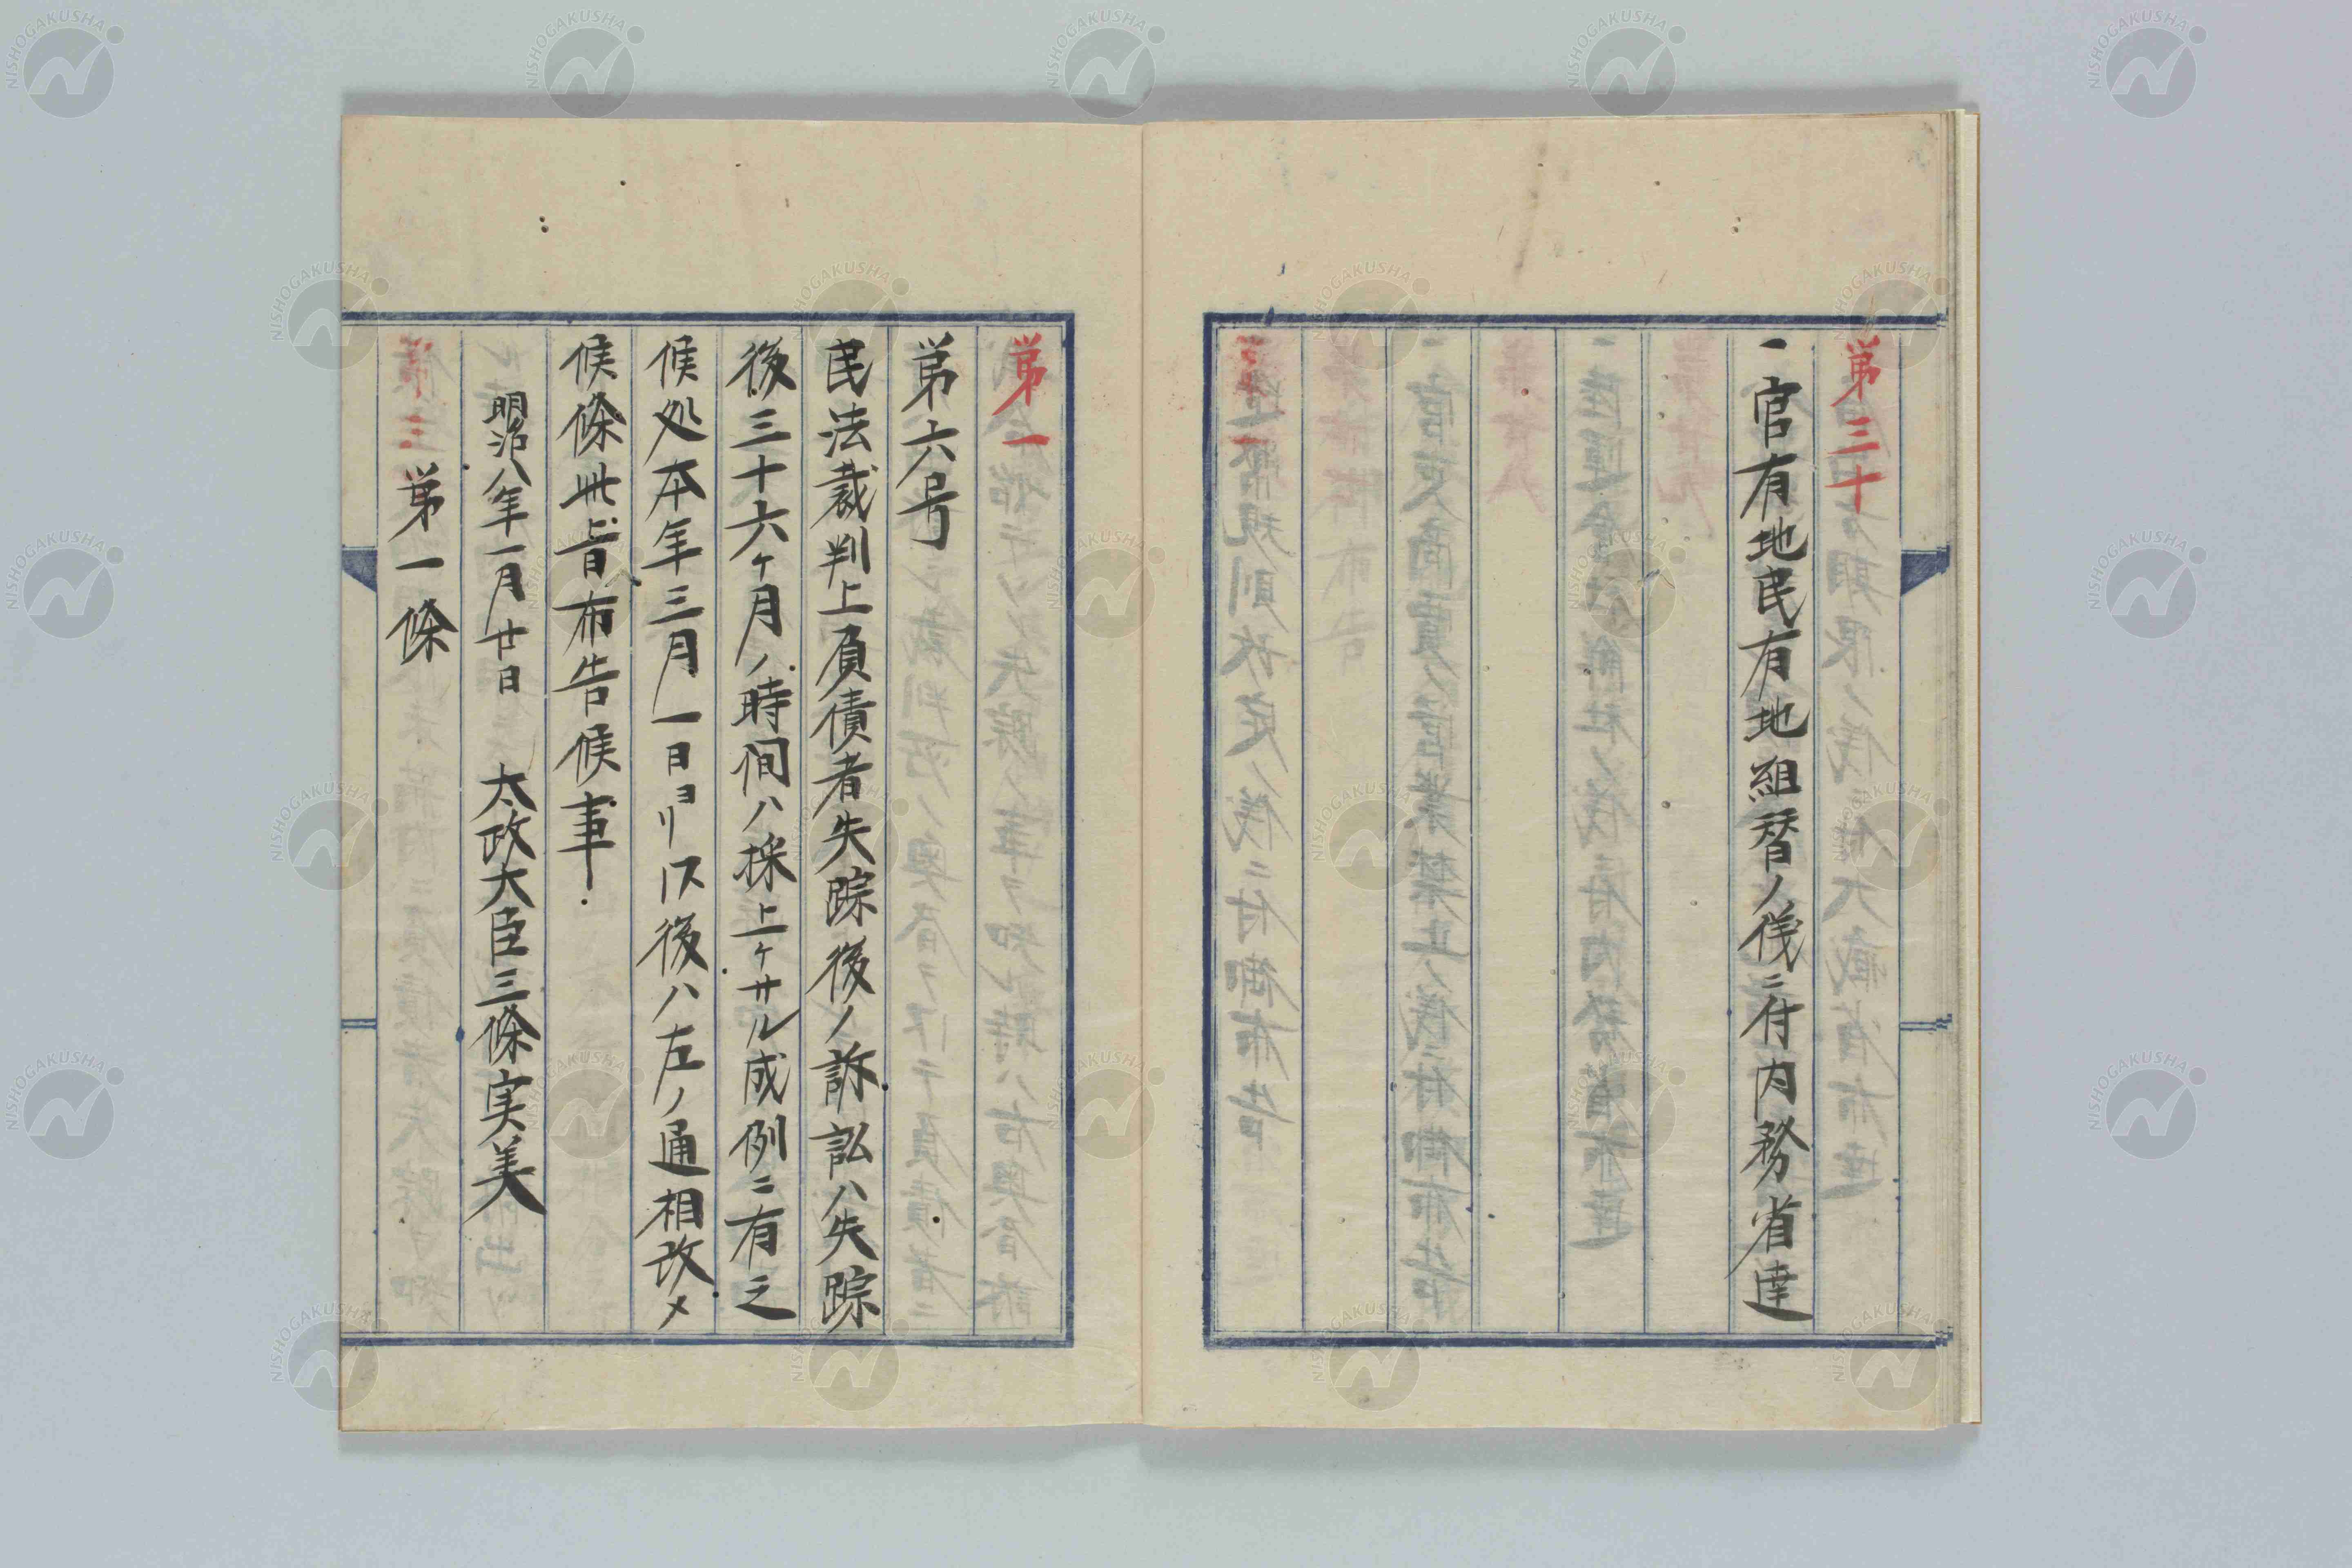 第三十
一官有地民有地組替ノ儀ニ付内務省達
第一
第六号
民法裁判上負債者失踪後ノ訴訟ハ失踪
後三十六ヶ月ノ時間ハ採上ケサル成例ニ有之
候処本年三月一日ヨリ以後ハ左ノ通相改メ
候條此旨布告候事
明治八年一月廿日 太政大臣三條実美
第一條
NISHOGAKUSHA